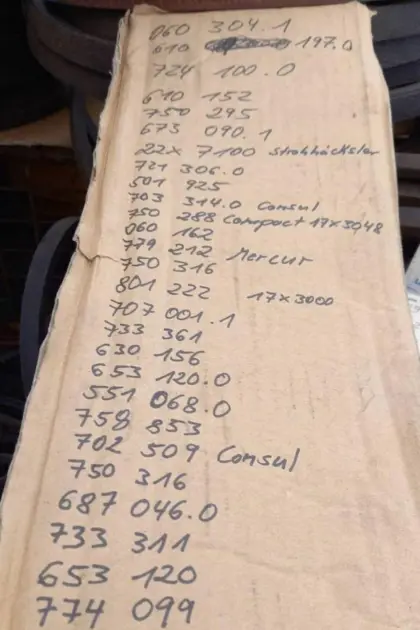 060 304.1
610 197.0
724 100.0
610 152
750 295
673 090.1
22x 7100 Strohhäcksler
721 306.0
501 925
703 314.0 Consul
750 288 Compact 17x3048
060 162
779 212 Mercur
750 316
801 222 17x3000
707 001.1
733 361
630 156
653 120.0
551 068.0
758 853
702 509 Consul
750 316
687 046.0
733 311
653 120
774 099